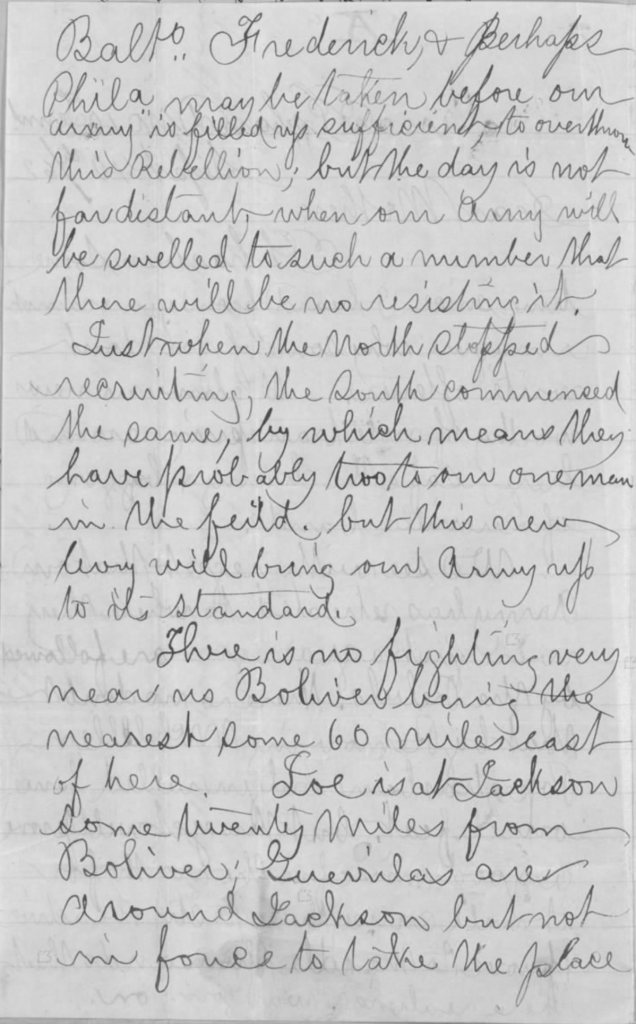 Balto., Frederick, & Perhaps
Phila may be taken before our
army is filled up sufficient, to overthrow
this Rebellion; but the day is not
far distant, when our Army will
be swelled to such a number that
there will be no resisting it.
Just when the North stopped
recruiting, the South commensed
the same, by which means they
have probably two to our one man
in the feild. but this new
levy will bring our Army up
to its standard.
There is no fighting very
near us Boliver being the
nearest some 60 miles east
of here. Joe is at Jackson
Some twenty Miles from
Boliver; Guerrilas are
around Jackson but not
in force to take the place